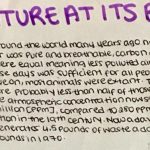 TURE AT ITS
ound the world many years ago
was pure and breathable. Carbon
ere equal meaning less polluted air
se days was sufficient for all peop
ean, most animals were extinct. T
e probably less than half of those
e atmospheric concentration now
million (ppm), compared to 280 ppm
than in the 19th century. Nowadays
generates 4.5 pounds of waste a da
ounds in 1970.